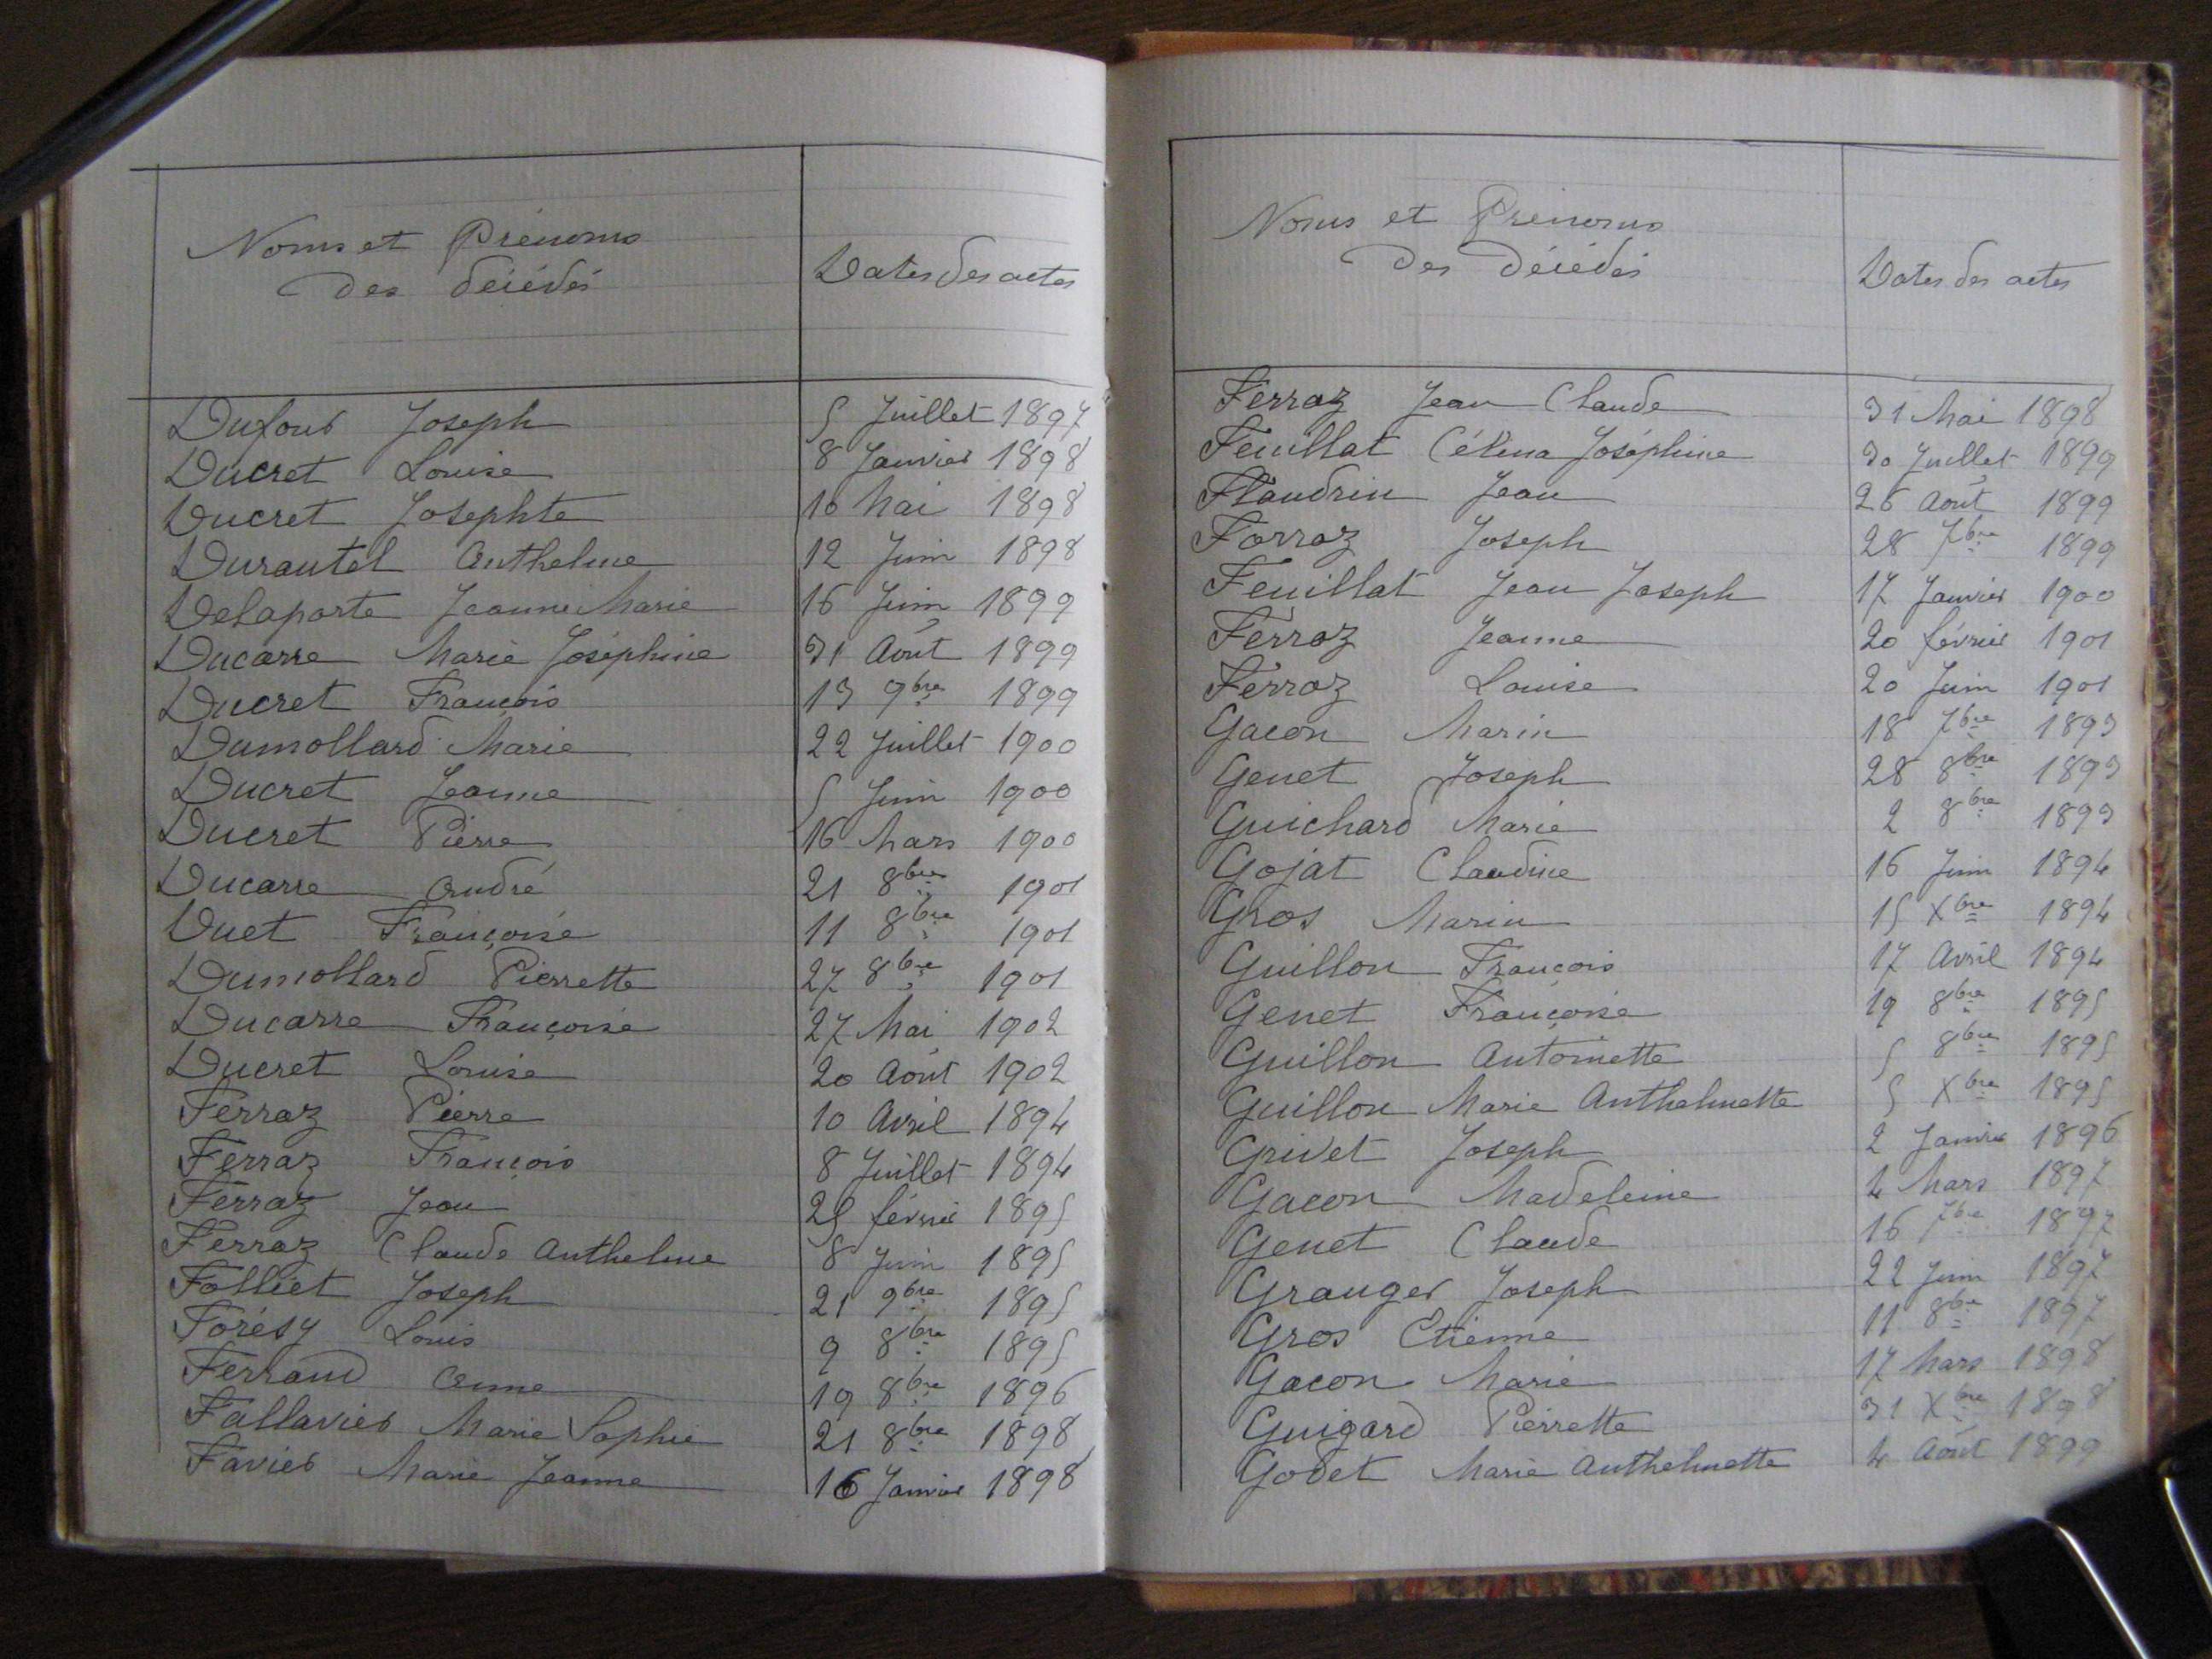 Noms et Prénoms
des décédés
Dates des actes
Dufour Joseph 5 Juillet 1897
Ducret Louise 8 Janvier 1898
Ducret Josephte 10 Mai 1898
Durantel Anthelme 12 Juin 1898
Delaporte Jeanne Marie 16 Juin 1899
Ducarre Marie Joséphine 31 Août 1899
Ducret François 13 9bre 1899
Dumollard Marie 22 Juillet 1900
Ducret Jeanne 5 Juin 1900
Ducret Pierre 16 Mars 1900
Ducarre André 21 8bre 1901
Duet Françoise 11 8bre 1901
Dumollard Pierrette 27 8bre 1901
Ducarre Françoise 27 Mai 1902
Ducret Louise 20 Août 1902
Ferraz Pierre 10 Avril 1894
Ferraz François 8 Juillet 1894
Ferraz Jean 25 février 1895
Ferraz Claude Anthelme 8 Juin 1895
Folliet Joseph 21 9bre 1895
Forésy Louis 9 8bre 1895
Ferrand Anne 19 8bre 1896
Fallavier Marie Sophie 21 8bre 1898
Favier Marie Jeanne 16 Janvier 1898
Noms et Prénoms
des Décédés
Dates des actes
Ferraz Jean Claude 31 Mai 1898
Feuillat Célina Joséphine 30 Juillet 1899
Flandrin Jean 26 Août 1899
Forraz Joseph 28 7bre 1899
Feuillat Jean Joseph 17 Janvier 1900
Ferraz Jeanne 20 février 1901
Ferraz Louise 20 Juin 1901
Gacon Marin 18 7bre 1893
Genet Joseph 28 8bre 1893
Guichard Marie 2 8bre 1893
Gojat Claudine 16 Juin 1894
Gros Marin 15 Xbre 1894
Guillon François 17 Avril 1894
Genet Françoise 19 8bre 1895
Guillon Antoinette 5 8bre 1895
Guillon Marie Anthelmette 5 Xbre 1895
Grivet Joseph 2 Janvier 1896
Gacon Madeleine 4 Mars 1897
Genet Claude 16 7bre 1897
Granger Joseph 22 Juin 1897
Gros Etienne 11 8bre 1897
Gacon Marie 17 Mars 1898
Guigard Pierrette 31 Xbre 1898
Godet Marie Anthelmette 4 Août 1899